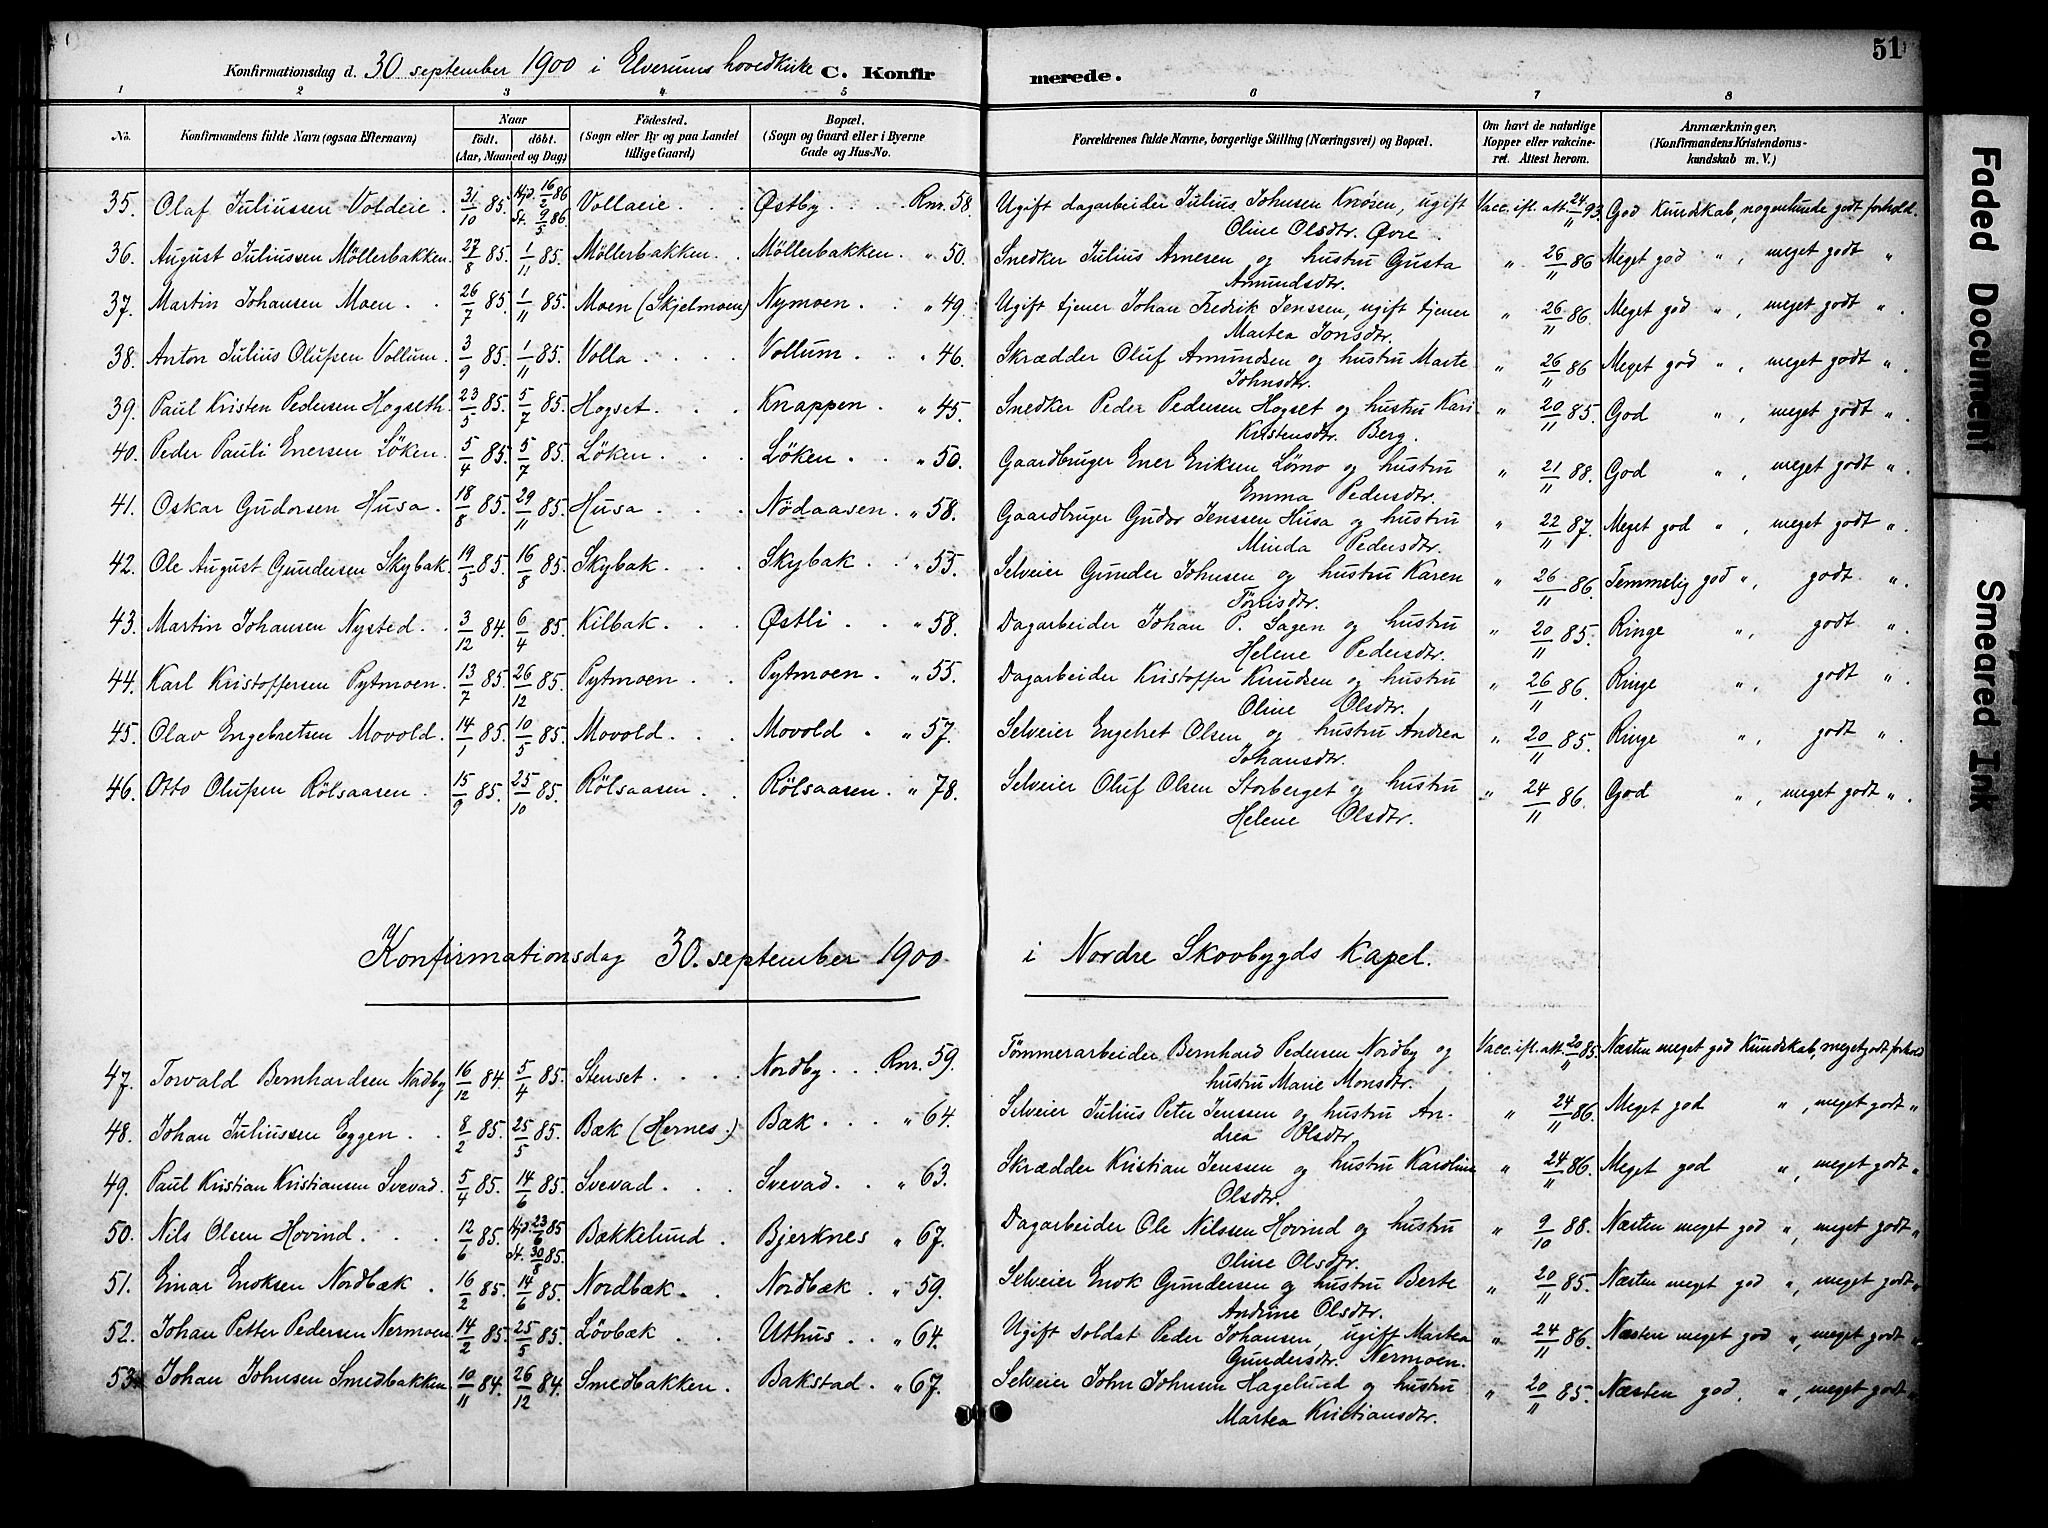 Konfirmationsdag d. 30 september 1900 i Elverums hovedkirke C. Konfir merede. 51
1 2 3 4 5 6 7 8
No. Konfirmandens fulde Navn (ogsaa Efternavn) Naar födt. döbt. (Aar, Maaned og Dag) Födested. (Sogn eller By og paa Landet tillige Gaard) Bopæl. (Sogn og Gaard eller i Byerne Gade og Hus-No. Forældrenes fulde Navne, borgerlige Stilling (Næringsvei) og Bopæl. Om havt de naturlige Kopper eller vakcineret. Attest herom. Anmærkninger. (Konfirmandens Kristendomskundskab m. V.)
35. Olaf Juliussen Voldeie. 31/10 85. Hjd. 16/2 86 St. 9/5 86. Vollaeie . . . Østby . . . Rnr. 58. Ugift dagarbeider Julius Johnsen Knösen, ugift Vacc. ifl. att. 24/11 93. God Kundskab, nogenlunde godt forhold.
Oline Olsdtr. Øvre.
36. August Juliussen Möllerbakken. 27/8 85. 1/11 85. Möllerbakken. . Möllerbakken. " 50. Snedker Julius Arnesen og hustru Gusta " 26/11 86 Meget god ", meget godt "
Amundsdtr.
37. Martin Johansen Moen . . 26/7 85. 1/11 85. Moen (Skjelmoen) Nymoen. . . " 49. Ugift tjener Johan Fredrik Jenssen, ugift tjener " 26/11 86. Meget god ", meget godt ".
Martea Jonsdtr.
38. Anton Julius Olufsen Vollum. 3/9 85. 1/11 85. Volla . . . . Vollum. . . " 46. Skrædder Oluf Amundsen og hustru Marte " 26/11 86 Meget god ", meget godt ".
Johnsdtr.
39. Paul Kristen Pedersen Hogseth. 23/5 85. 5/7 85. Hogset. . . Knappen . . " 45. Snedker Peder Pedersen Hogset og hustru Kari " 20/11 85. God ", meget godt ".
Kristensdtr. Berg.
40. Peder Pauli Enersen Löken. 5/4 85. 5/7 85. Löken. . . . Löken . . . " 50. Gaardbruger Ener Eriksen Lömo og hustru " 21/11 88. God ", meget godt ".
Emma Pedersdtr.
41. Oskar Gudorsen Husa. 18/8 85. 29/11 85. Husa . . . Nödaasen. " 58. Gaardbruger Gudor Jenssen Husa og hustru " 22/11 87. Meget god ", meget godt ".
Minda Pedersdtr.
42. Ole August Gundersen Skybak. 19/5 85. 16/8 85. Skybak . . . Skybak . . " 55. Selveier Gunder Johnsen og hustru Karen " 26/11 86. Temmelig god ", godt ".
Tönisdtr.
43. Martin Johansen Nysted. . 3/12 84. 6/4 85. Kilbak. . . Østli . . . " 58. Dagarbeider Johan P. Sagen og hustru " 20/11 85. Ringe ", godt ".
Helene Pedersdtr.
44. Karl Kristoffersen Pytmoen. 13/7 85. 26/12 85. Pytmoen . . Pytmoen . " 55. Dagarbeider Kristoffer Knudsen og hustru " 26/11 86. Ringe ", godt ".
Oline Olsdtr.
45. Olav Engebretsen Movold. 14/1 85. 10/5 85. Movold. . . Movold . " 57. Selveier Engebret Olsen og hustru Andrea " 20/11 85. Ringe ", godt ".
Johansdtr.
46. Otto Olufsen Rölsaasen. 15/9 85. 25/10 85. Rölsaasen . . Rölsaasen. " 78. Selveier Oluf Olsen Storberget og hustru " 24/11 86. God ", meget godt ".
Helene Olsdtr.
Konfirmationsdag 30. september 1900 i Nordre Skovbygds Kapel.
47. Torvald Bernhardsen Nordby 16/12 84. 5/4 85. Stenset . . . . Nordby . . . Rnr. 59. Tömmerarbeider Bernhard Pedersen Nordby og Vacc. ifl. att. 20/11 85. Næsten meget god Kundskab, meget godt forhold
hustru Marie Monsdtr.
48. Johan Juliussen Eggen. . . 8/2 85. 25/5 85. Bæk (Hernes.) Bæk . . . " 64. Selveier Julius Peter Jenssen og hustru An- " 24/11 86. Meget god ", meget godt "
drea Olsdtr.
49. Paul Kristian Kristiansen Svevad. 5/4 85. 14/6 85. Svevad. . . Svevad. . . " 63. Skrædder Kristian Jenssen og hustru Karoline " 24/11 86. Meget god ", meget godt "
Olsdtr.
50. Nils Olsen Hovind. . . 12/6 85. Hjd. 23/6 85 St. 30/8 85. Bækkelund. Bjerknes " 67. Dagarbeider Ole Nilssen Hovind og hustru " 9/10 88. Næsten meget god ", meget godt "
Oline Olsdtr.
51. Einar Enoksen Nordbæk . 16/2 85. 14/6 85. Nordbæk. . Nordbæk . " 59. Selveier Enok Gundersen og hustru Berte " 20/11 85. Næsten meget god ", meget godt "
Andrine Olsdtr.
52. Johan Petter Pedersen Nermoen. 14/2 85. 25/5 85. Lövbæk . . Uthus . . " 64. Ugift soldat Peder Johansen, ugift Martea " 24/11 86. Næsten meget god ", meget godt "
Gundersdtr. Nermoen.
53. Johan Johnsen Smedbakken. 10/11 84. 26/12 84. Smedbakken. Bakstad. " 67. Selveier John Johnsen Hagelund og hustru " 20/11 85. Næsten god. ", meget godt "
Martea Kristiansdtr.
Faded Document
Smeared Ink